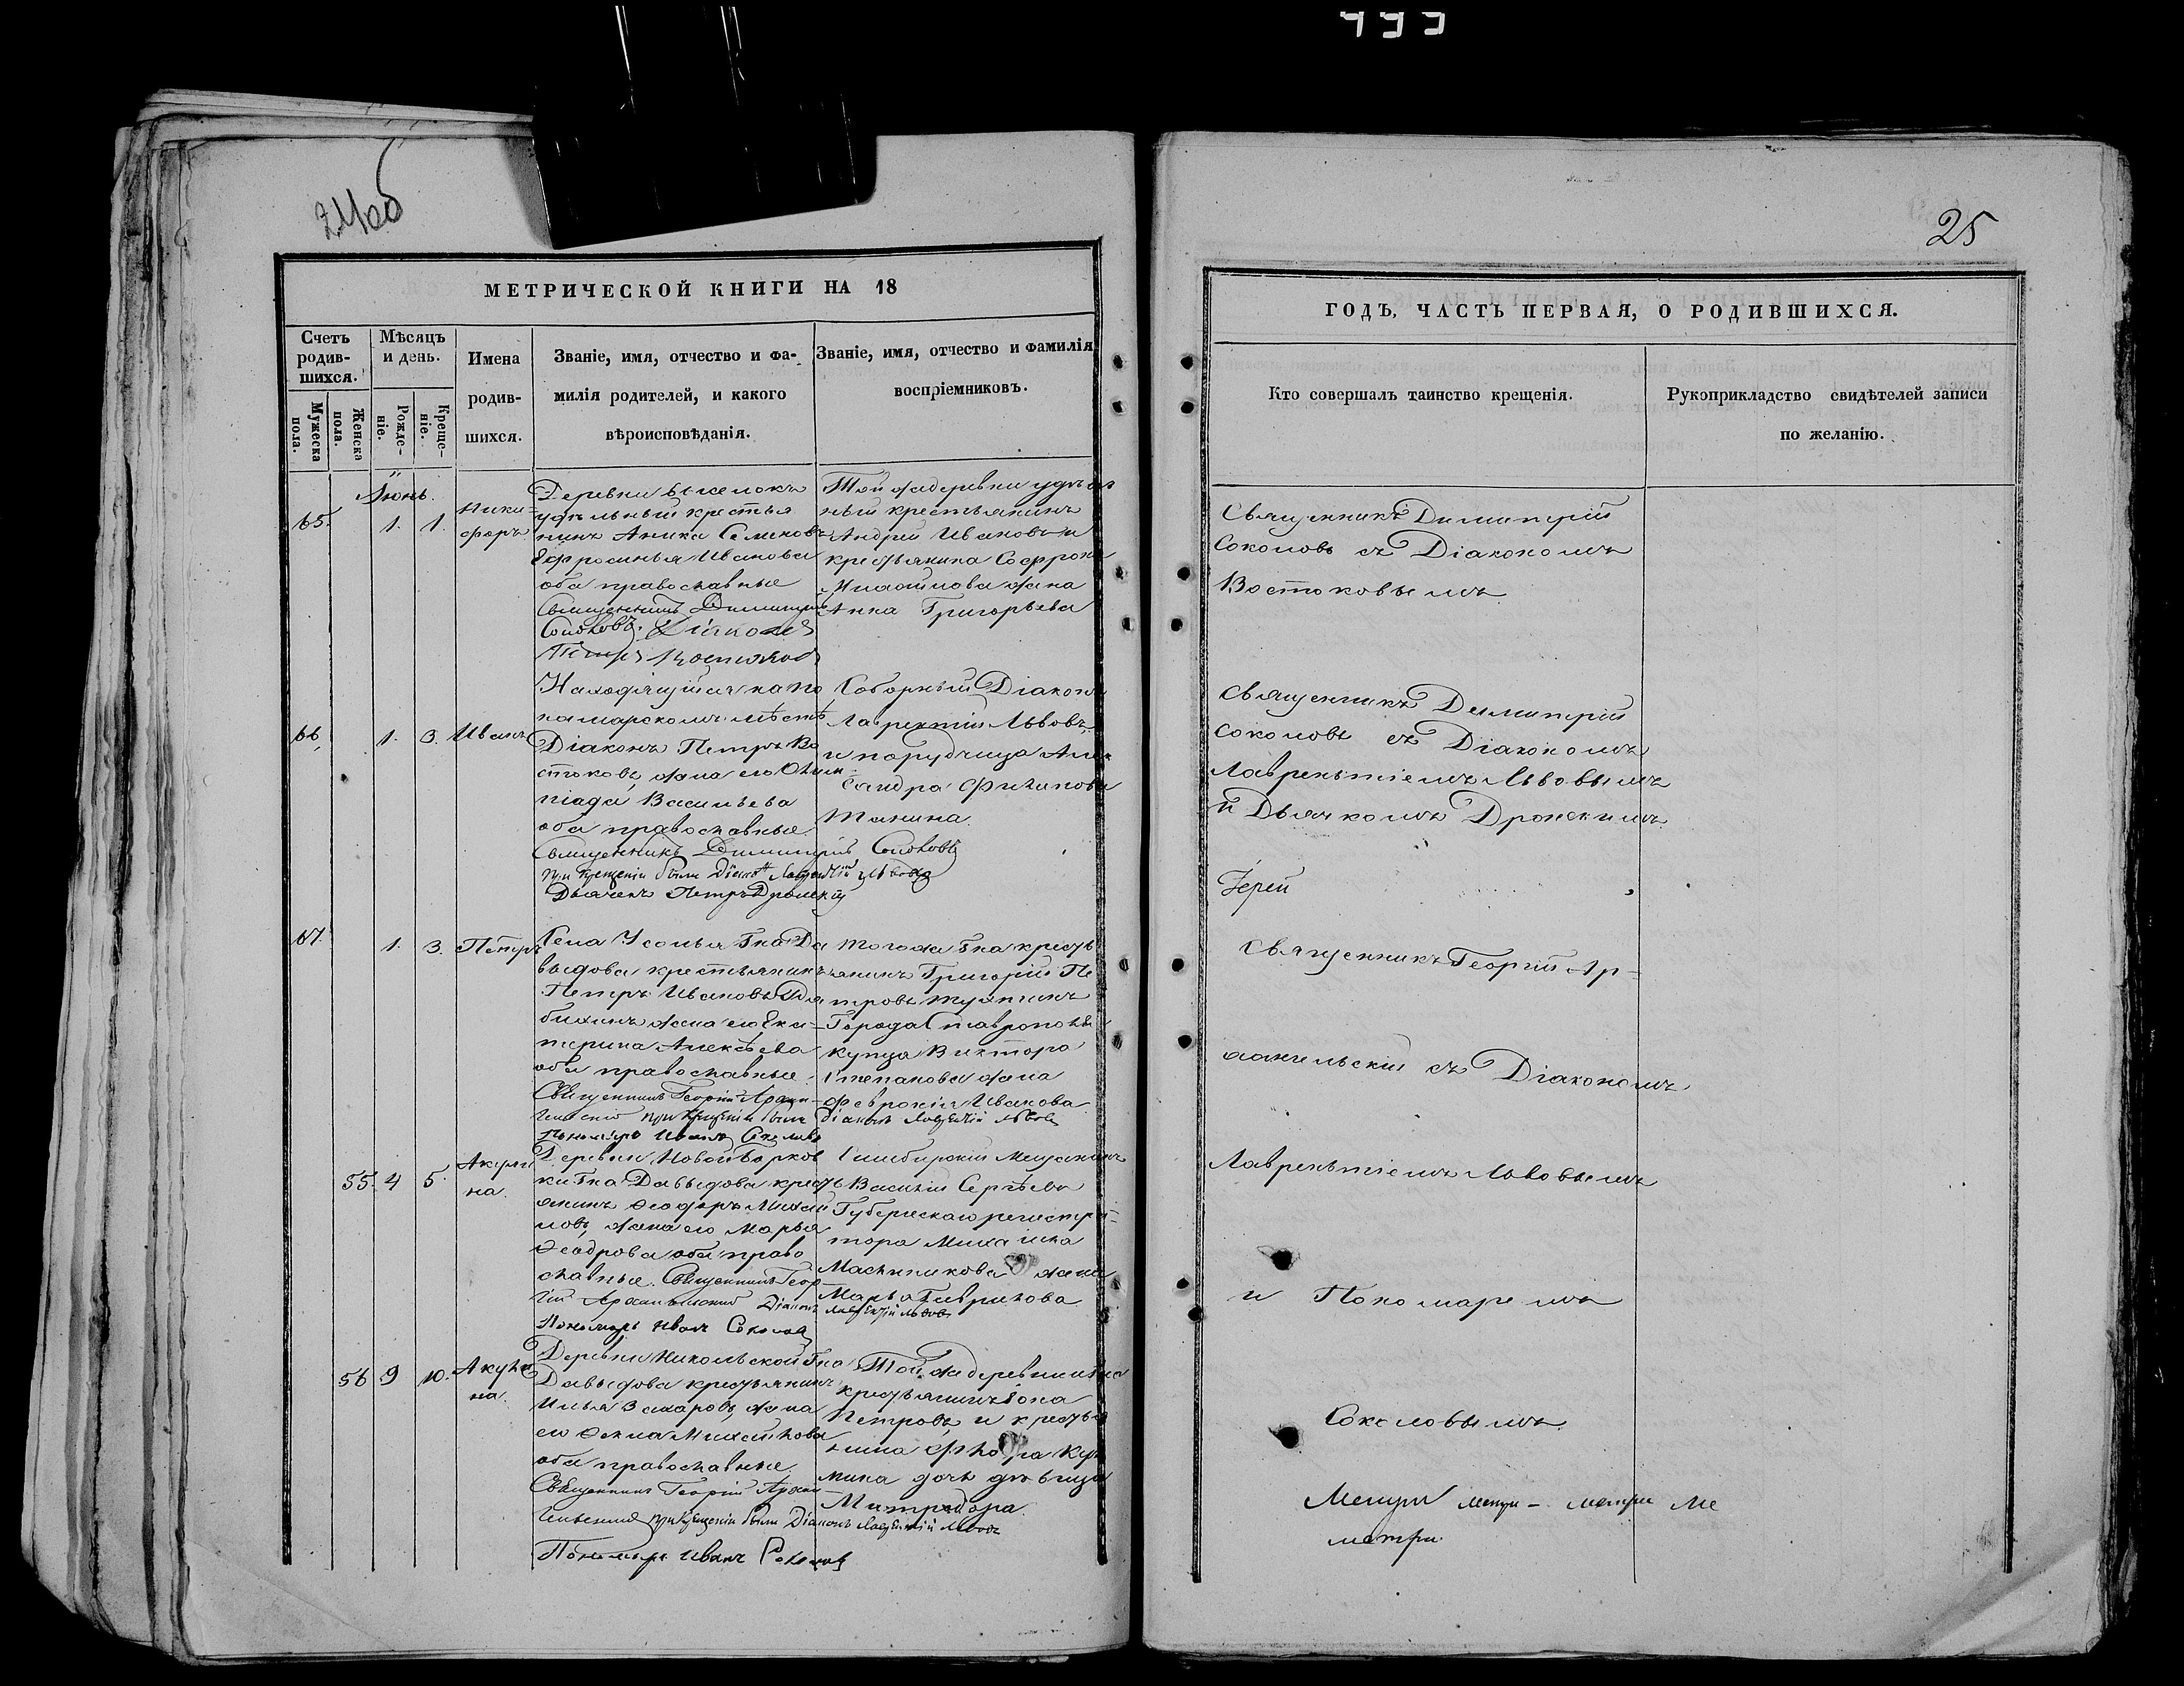 24об
МЕТРИЧЕСКОЙ КНИГИ НА 18
Счетъ родив-шихся.
Мѣсяцъ и день.
Имена родив-шихся.
Званіе, имя, отчество и фа-
милія родителей, и какого
вѣроисповѣданія.
Званіе, имя, отчество и фамилія
воспріемниковъ.
Мужеска пола.
Женска пола.
Рожде-ніе.
Креще-ніе.
Іюнь.
65. 1. 1.
Ники=
форъ
Деревни Выселокъ
удѣльный крестья
нинъ Аника Семеновъ
Ефросинья Иванова
оба православные
Священникъ Димитрій
Соколовъ. Діаконъ
Петръ Востоковъ
Той же деревни удѣль
ный крестьянинъ
Андрей Ивановъ и
крестьянина Софрона
жена
Анна Григорьева
66. 1. 3. Иванъ
Находящійся на по
намарскомъ мѣстѣ
Діаконъ Петръ Во
стоковъ, жена его Олим
піада Васильева
оба православные.
Священникъ Димитрій Соколовъ
при крещеніи были Діаконъ Лаврентій Львовъ
Дьячекъ Петръ Дронскій
Соборный Діаконъ
Лаврентій Львовъ,
и порутчица Алек
сандра Филипова
67. 1. 3. Петръ
Села Усолья Гна Да
выдова крестьянинъ
Петръ Ивановъ
жена его Ека=
терина Алексѣева
оба православные.
Священникъ Георгій Архан-
гельскій при крещеніи были Діаконъ Лаврентій Львовъ
Пономарь Иванъ Соколовъ
того же Гна кресть
янинъ Григорій Пе
тровъ
Города Ставрополя
купца Виктора
Степанова жена
Февронія Иванова
55. 4 5.
Акули
на.
Деревни Новой Борков
ки Гна Давыдова кресть
янинъ Ѳеодоръ Михай
ловъ, жена его Марья
Ѳеодрова оба право
славные. Священникъ Геор-
гій Архангельскій Діаконъ Лаврентій Львовъ
Пономарь Иванъ Соколовъ
Симбирскій Мещанинъ
Василій Сергѣевъ
Губернскаго регистра=
тора Михаила
Масленикова жена
Марья Гаврилова
56 9 10.
Акули
на.
Деревни Никольской Гна
Давыдова крестьянинъ
Илья Захаровъ, жена
его Ѳекла Михайлова
оба православные.
Священникъ Георгій Архан-
гельскій при крещеніи были Діаконъ Лаврентій Львовъ
Пономарь Иванъ Соколовъ
Той же деревни и Гна
крестьянинъ Іона
Петровъ, и крестья
нина Флора Кузь
мина дочь дѣвица
Митродора.
25
ГОДЪ, ЧАСТЬ ПЕРВАЯ, О РОДИВШИХСЯ.
Кто совершалъ таинство крещенія.
Рукоприкладство свидѣтелей записи
по желанію.
Священникъ Димитрій
Соколовъ съ Діакономъ
Востоковымъ
Священникъ Димитрій
Соколовъ съ Діакономъ
Лаврентіемъ Львовымъ
и Дьячкомъ Дронскимъ.
Іерей
Священникъ Георгій Ар=
хангельскій съ Діакономъ
Лаврентіемъ Львовымъ
и Пономаремъ
Соколовымъ.
метри